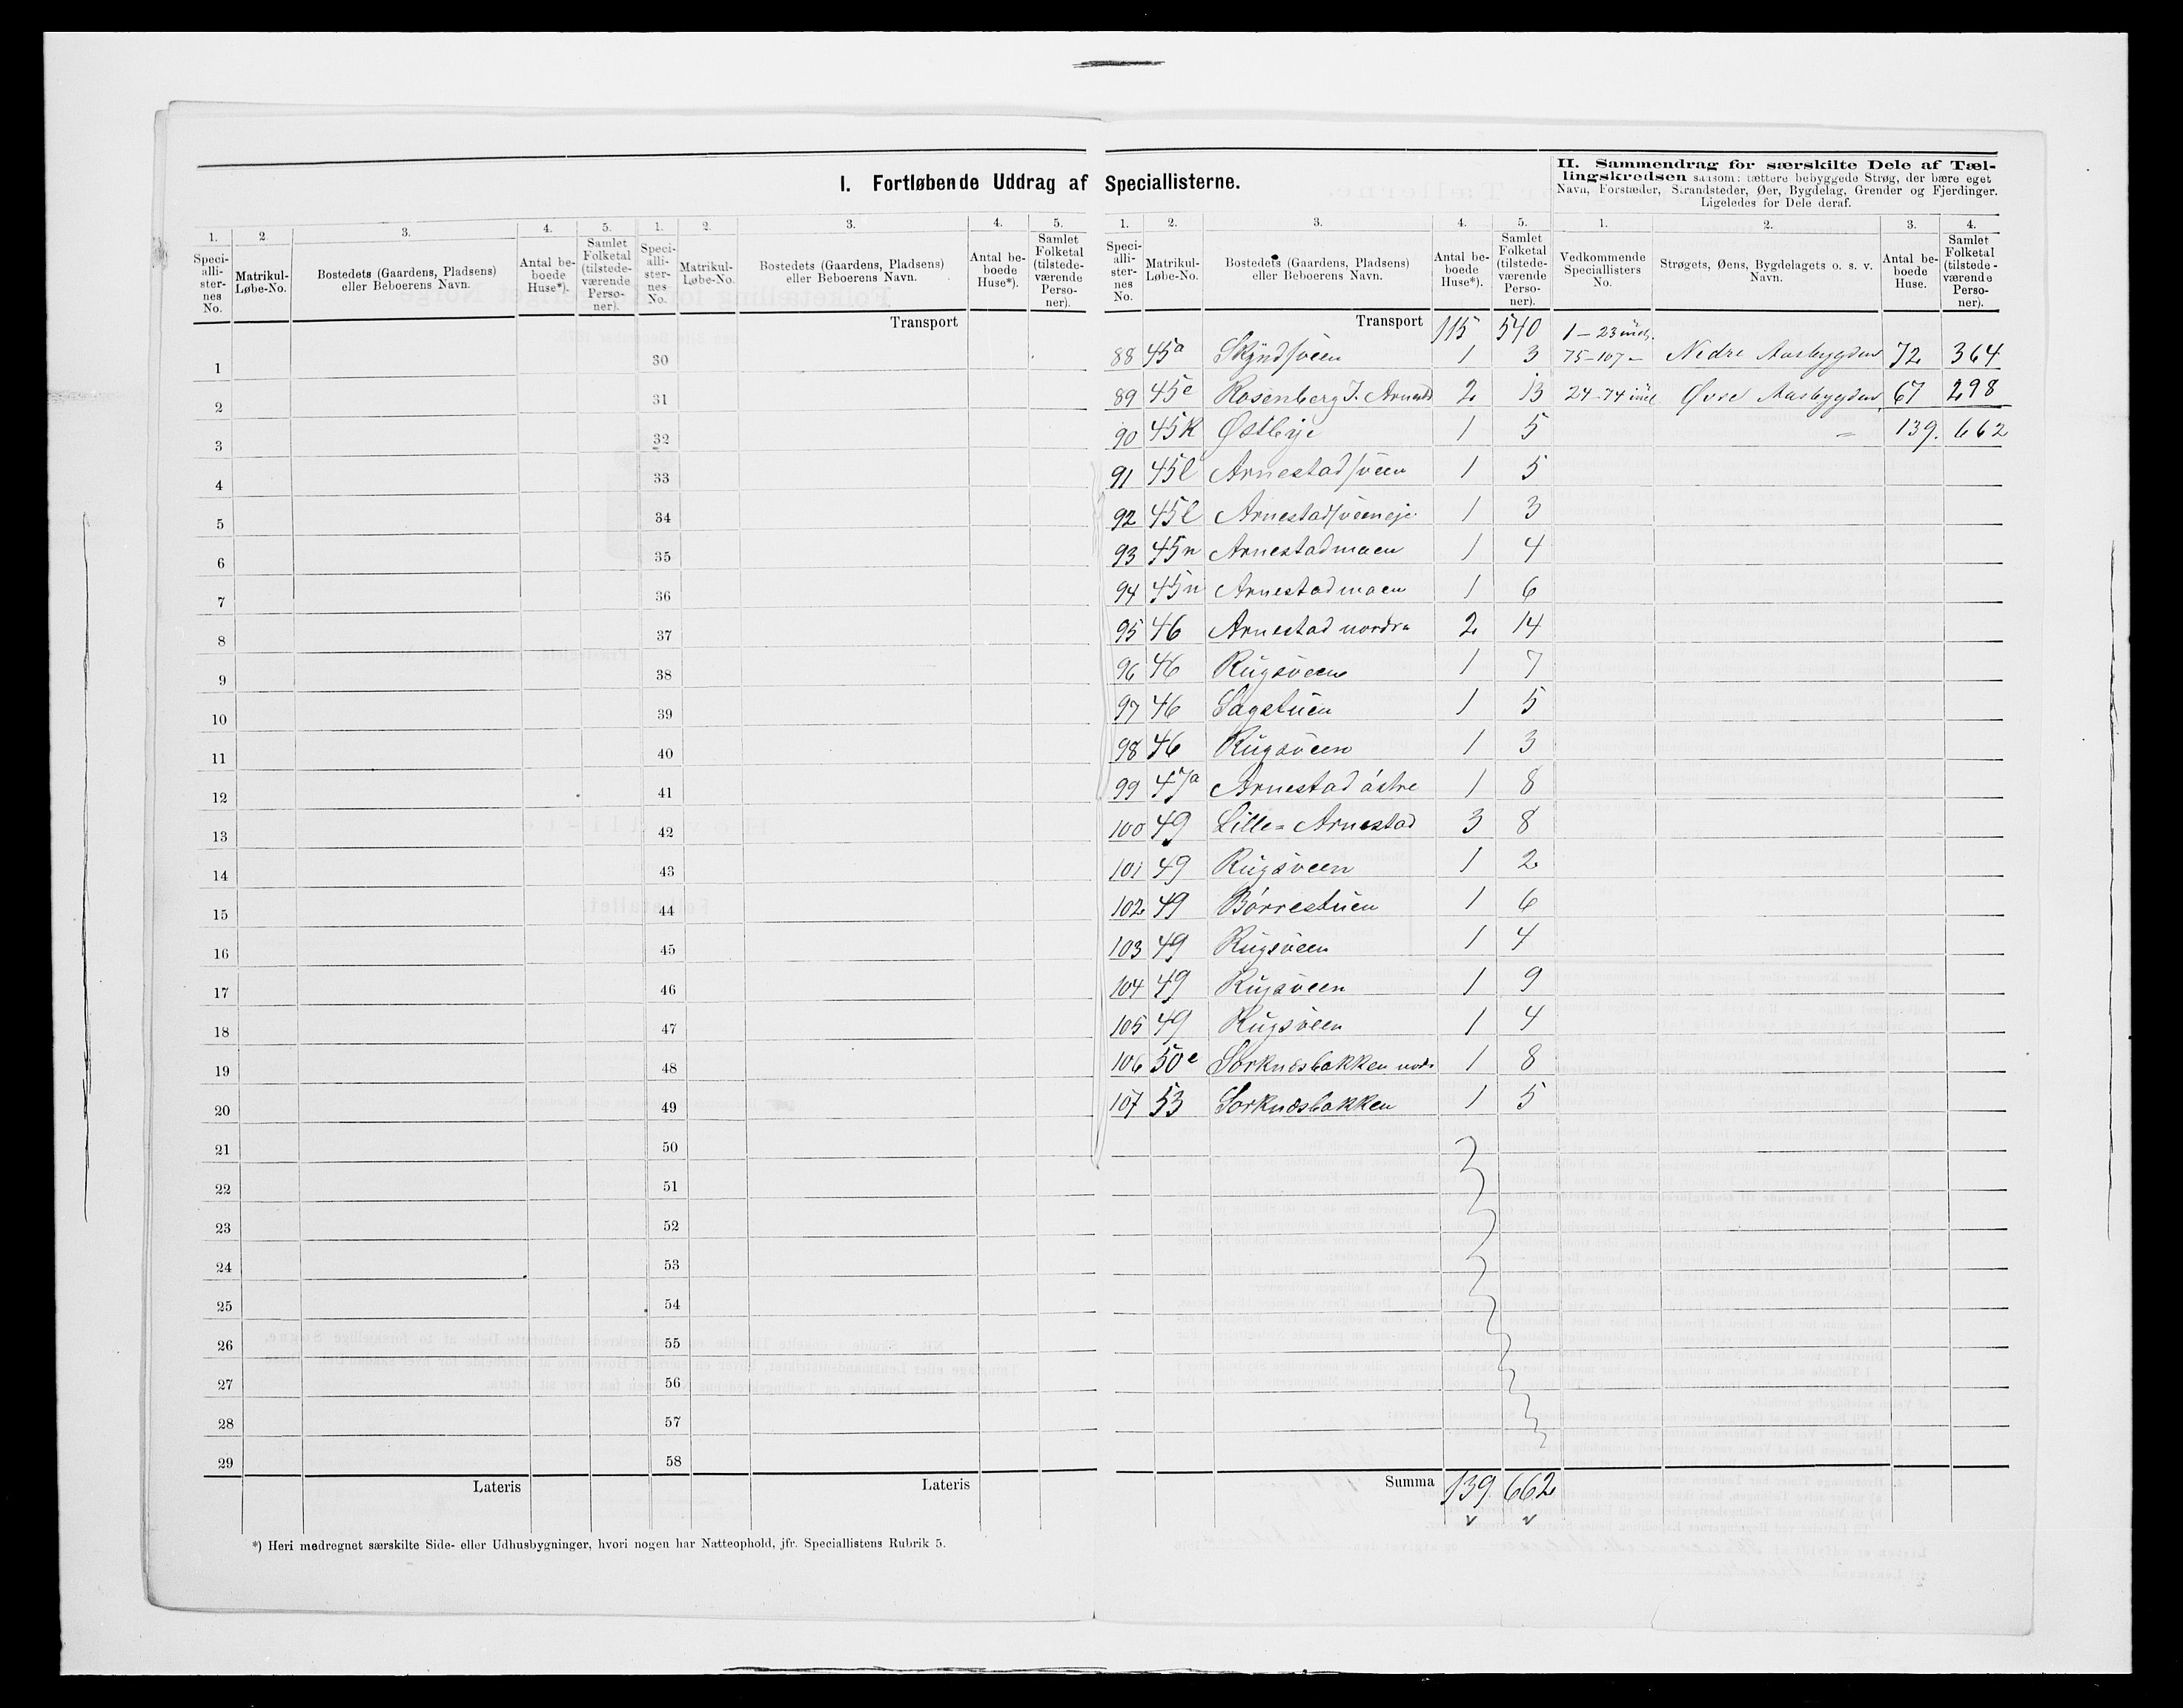 I. Fortløbende Uddrag af Speciallisterne.
II. Sammendrag for særskilte Dele af Tæl-
lingskredsen saasom: tættere bebyggede Strøg, der bære eget
Navn, Forstæder, Strandsteder, Øer, Bygdelag, Grender og Fjerdinger.
Ligeledes for Dele deraf.
1. 2. 3. 4. 5. 1. 2. 3. 4. 5.
Speci-alli-ster-nes No. Matrikul-Løbe-No. Bostedets (Gaardens, Pladsens) eller Beboerens Navn. Antal be-boede Huse*). Samlet Folketal (tilstede-værende Perso-ner). Speci-alli-ster-nes No. Matrikul-Løbe-No. Bostedets (Gaardens, Pladsens) eller Beboerens Navn. Antal be-boede Huse*). Samlet Folketal (tilstede-værende Perso-ner).
Transport
1 30
2 31
3 32
4 33
5 34
6 35
7 36
8 37
9 38
10 39
11 40
12 41
13 42
14 43
15 44
16 45
17 46
18 47
19 48
20 49
21 50
22 51
23 52
24 53
25 54
26 55
27 56
28 57
29 58
Lateris Lateris
*) Heri medregnet særskilte Side- eller Udhusbygninger, hvori nogen har Natteophold, jfr. Speciallistens Rubrik 5.
1. 2. 3. 4. 5. 1. 2. 3. 4.
Speci-alli-ster-nes No. Matrikul-Løbe-No. Bostedets (Gaardens, Pladsens) eller Beboerens Navn. Antal be-boede Huse*). Samlet Folketal (tilstede-værende Perso-ner). Vedkommende Speciallisters No. Strøgets, Øens, Bygdelagets o. s. v. Navn. Antal be-boede Huse. Samlet Folketal (tilstede-værende Perso-ner).
Transport 115 540 1-23 incl.
88 45a 1 3 75-107 - Nedre Aasbygden 72 364
89 45e Rosenberg J. 2 13 24-74 incl Øvre Aasbygden 67 298
90 45k Østbye 1 5 = 139. 662
91 45l Arnestadsveen 1 5
92 45l Arnestadsveeneje 1 3
93 45n Arnestadmoen 1 4
94 45n Arnestadmoen 1 6
95 46 Arnestad nordre 2 14
96 46 Rugsveen 1 7
97 46 Sagstuen 1 5
98 46 Rugsveen 1 3
99 47a Arnestad østre 1 8
100 49 Lille= Arnestad 3 8
101 49 Rugsveen 1 2
102 49 Børrestuen 1 6
103 49 Rugsveen 1 4
104 49 Rugsveen 1 9
105 49 Rugsveen 1 4
106 50e Sorknesbakken nord. 1 8
107 53 Sorknæsbakken 1 5
Summa 139 662